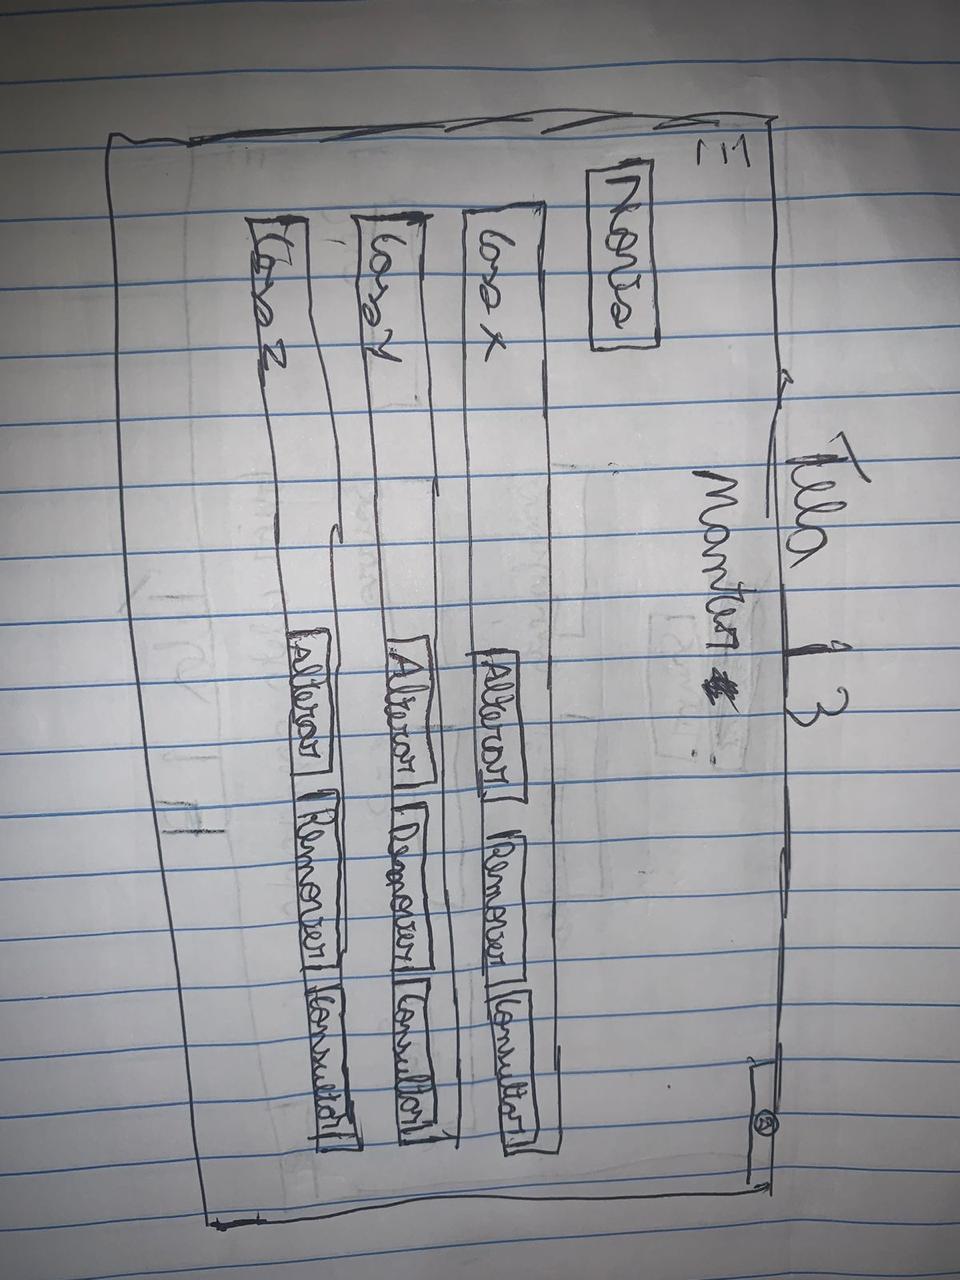 Tela 13
Manter
Nova
Casa X Alterar Remover Consultar
Casa Y Alterar Remover Consultar
Casa Z Alterar Remover Consultar